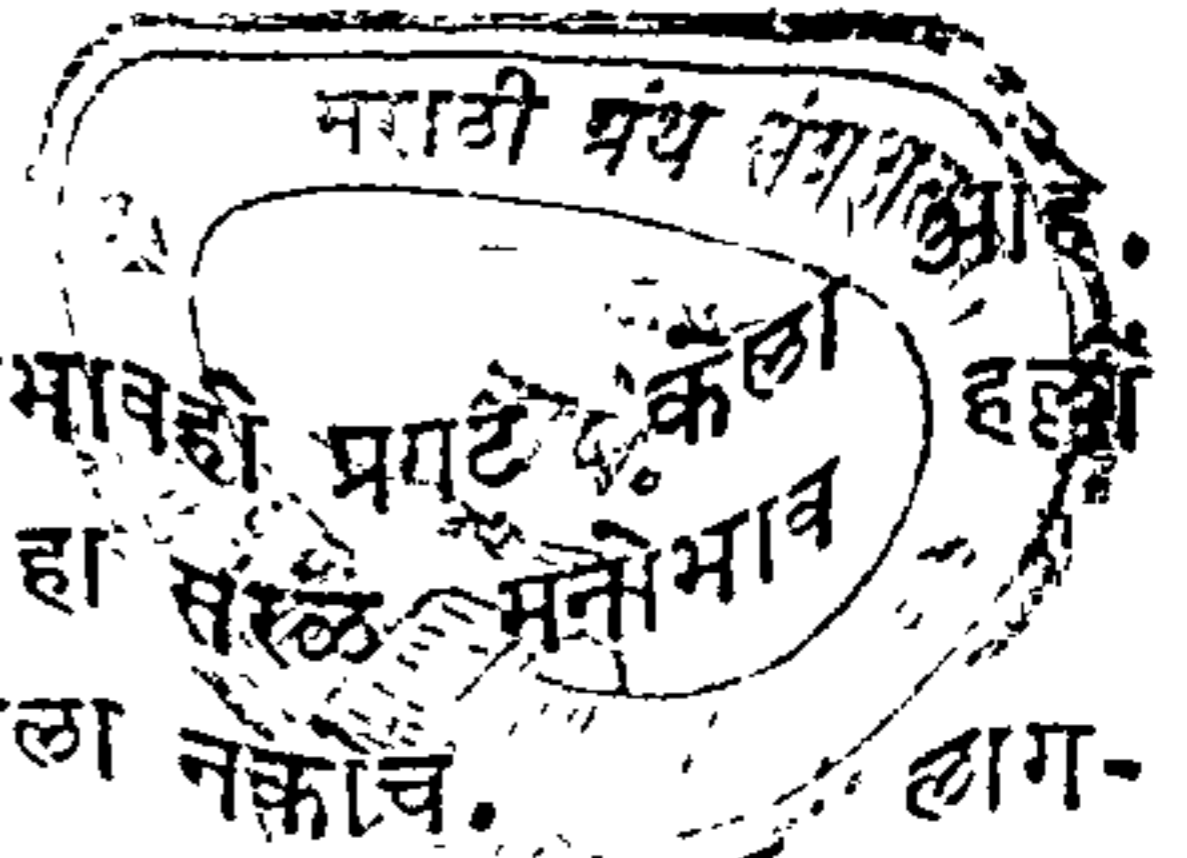 मराठी ग्रंथ
आहे.
भावही प्रगट केला हल्लीं
हा सरळ मनोभाव
ला नकोच. लाग-